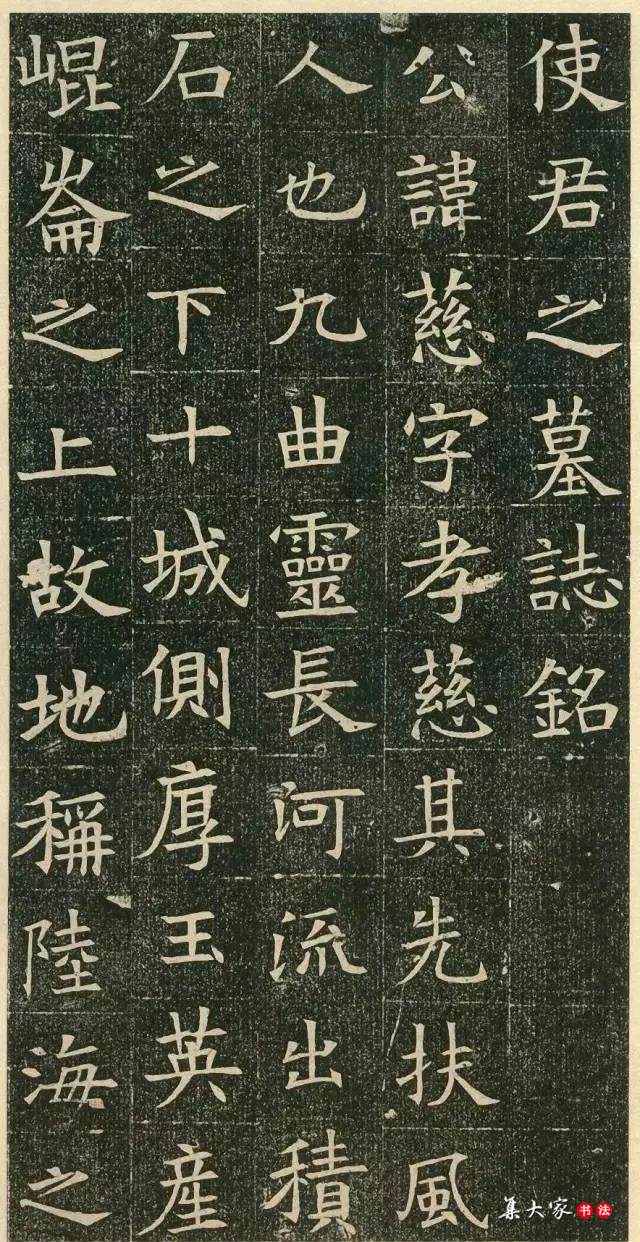 使君之墓誌銘
公諱慈字孝慈其先扶風
人也九曲靈長河流出積
石之下十城側厚玉英産
崐崙之上故地稱陸海之
集大家书法